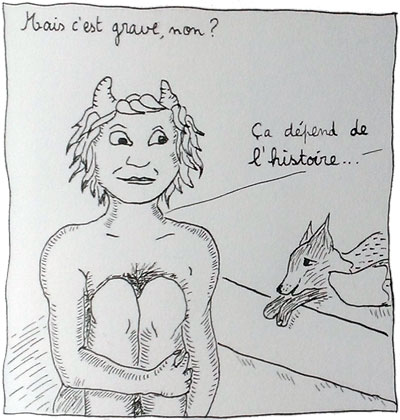 Mais c'est grave, non ?
Ça dépend de
l'histoire...